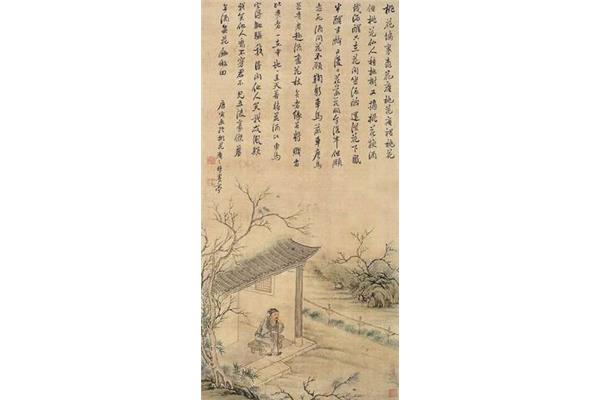 桃花塢裏桃花庵桃花庵裡桃花
仙桃花仙人種桃樹又摘桃花換酒
錢酒醒只在花間坐酒醉還須花下眠
半醉半醒日復日花落花開年復年但願
老死酒間花不願鞠躬車馬前車塵馬
足貴者趣酒盞花枝貧者緣若將賤者
比貴者一在平地一在天若將花酒比車馬
他得驅馳我得閒他人笑我忒風顛
我笑他人看不穿君不見五陵豪傑墓
無酒無花鋤做田
唐寅畫於桃花庵之夢墨亭